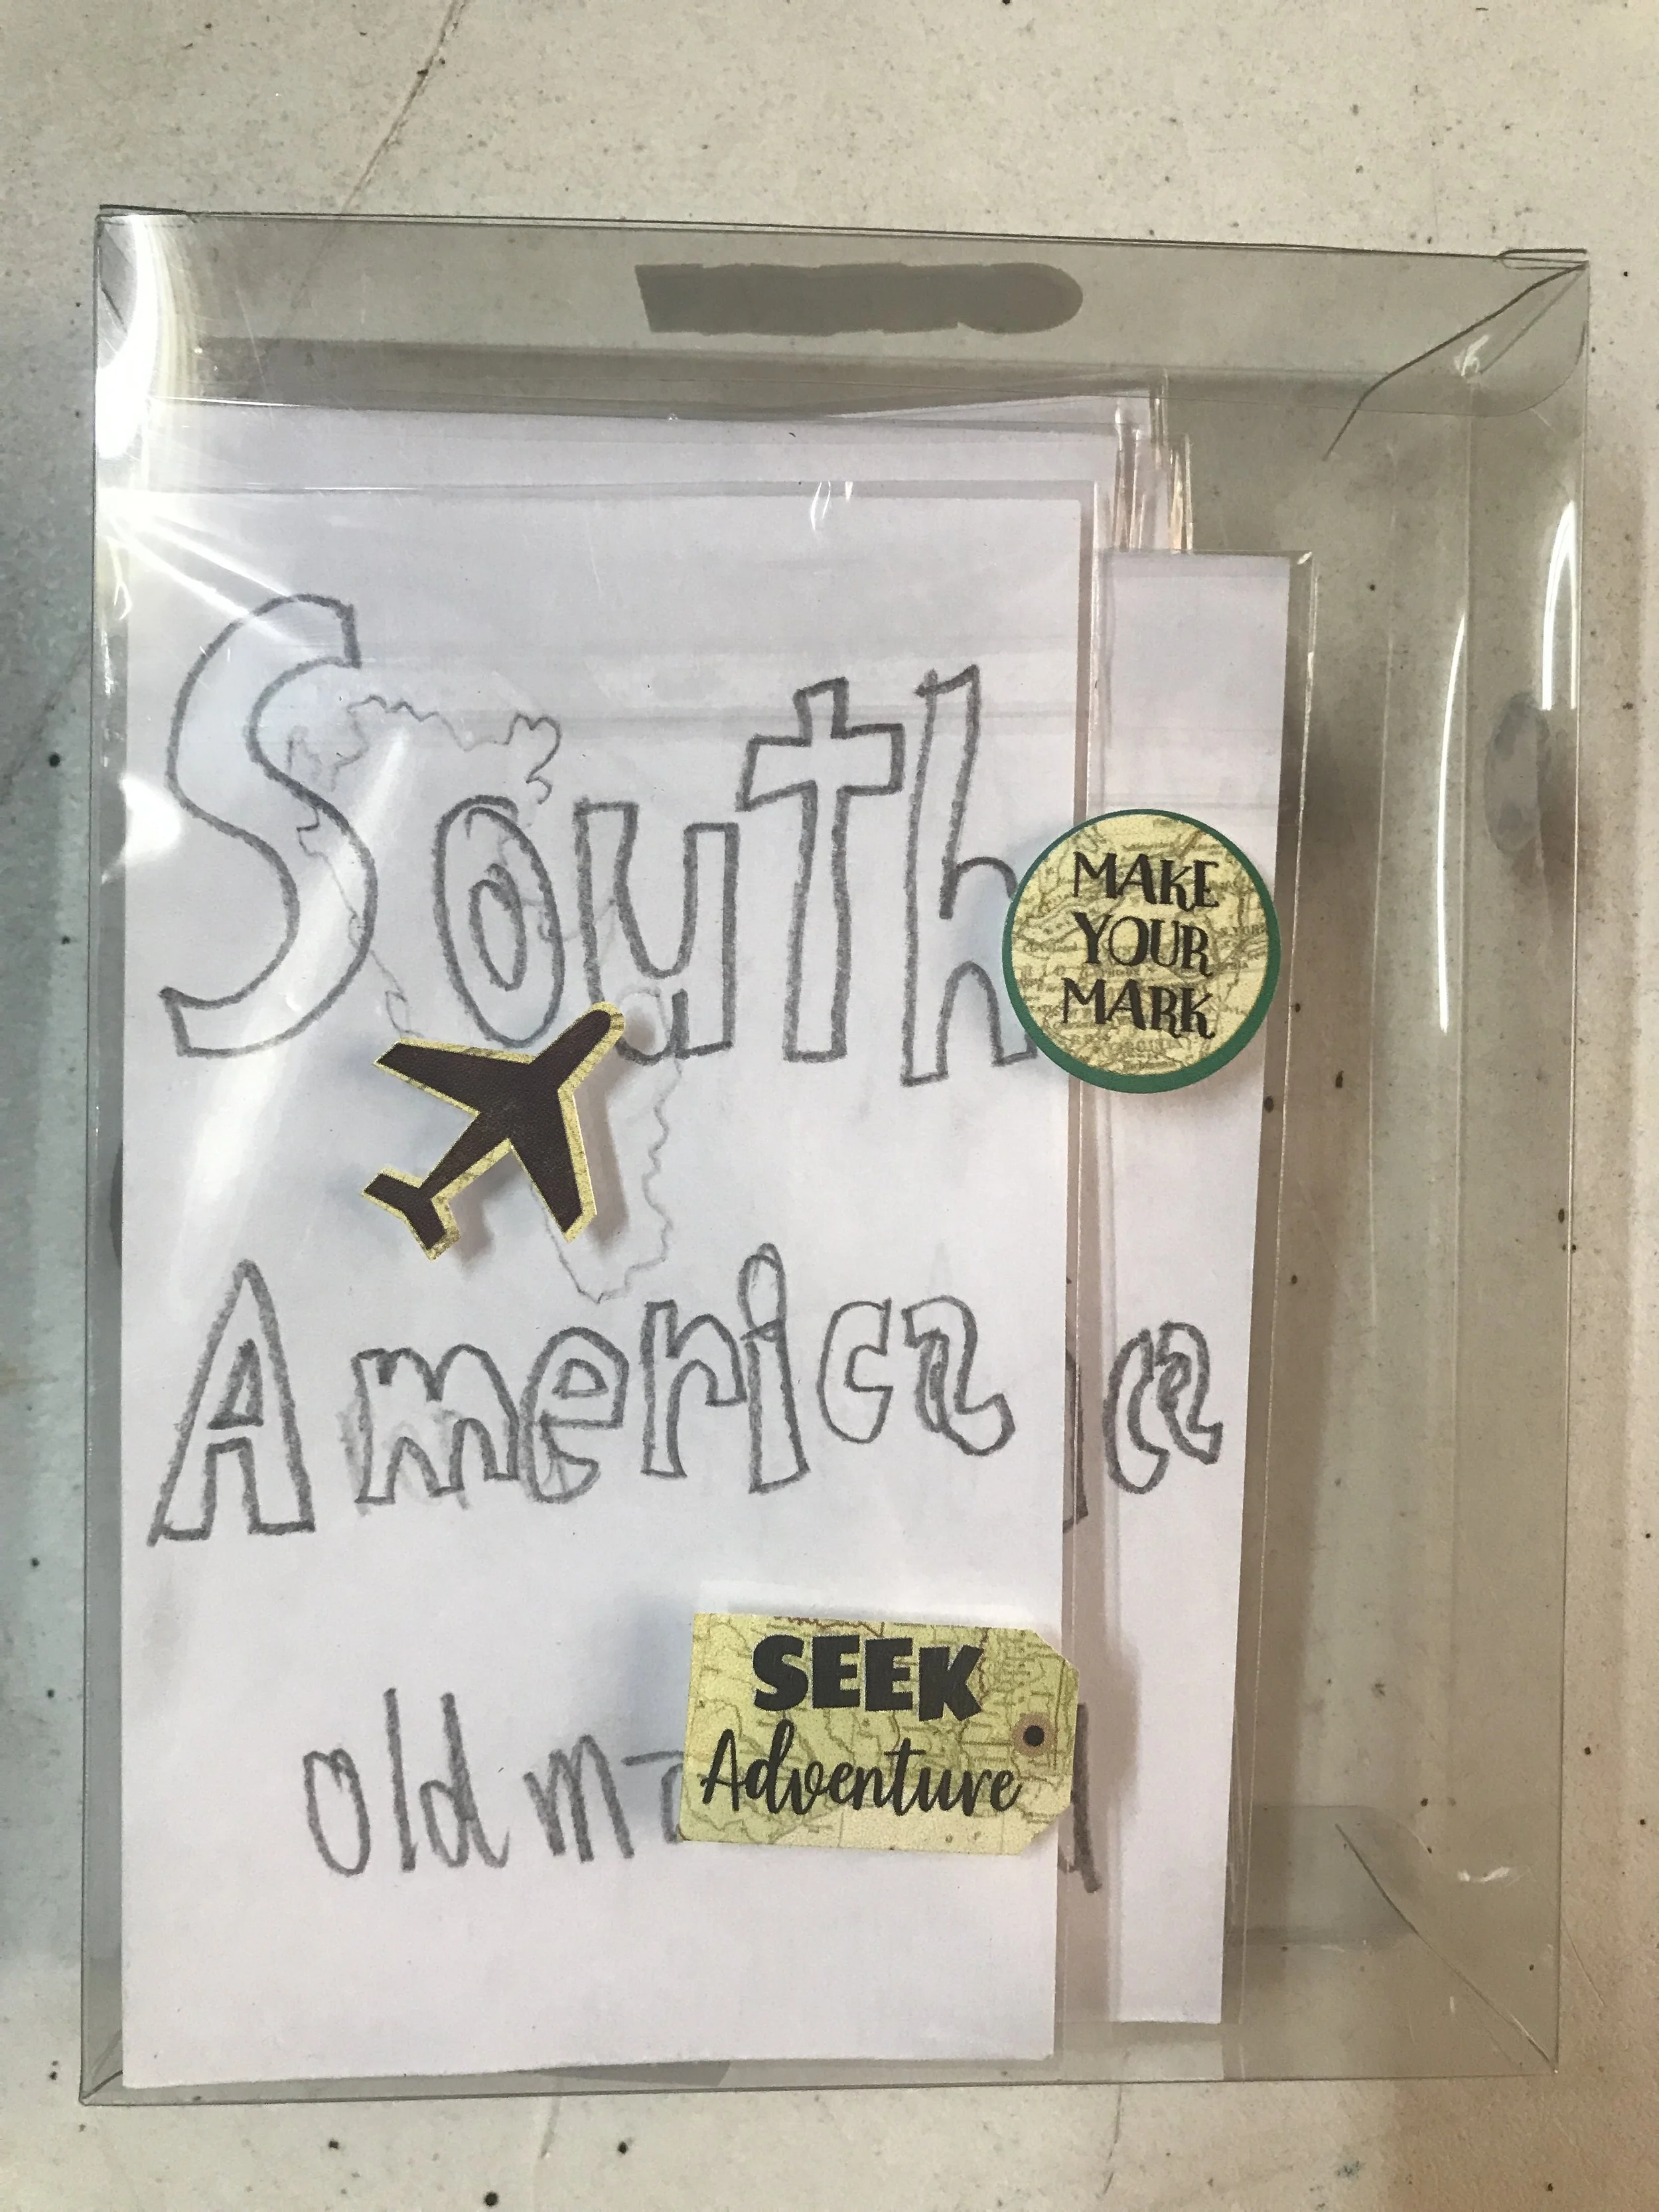 South
America
ca
MAKE
YOUR
MARK
SEEK
Adventure
old